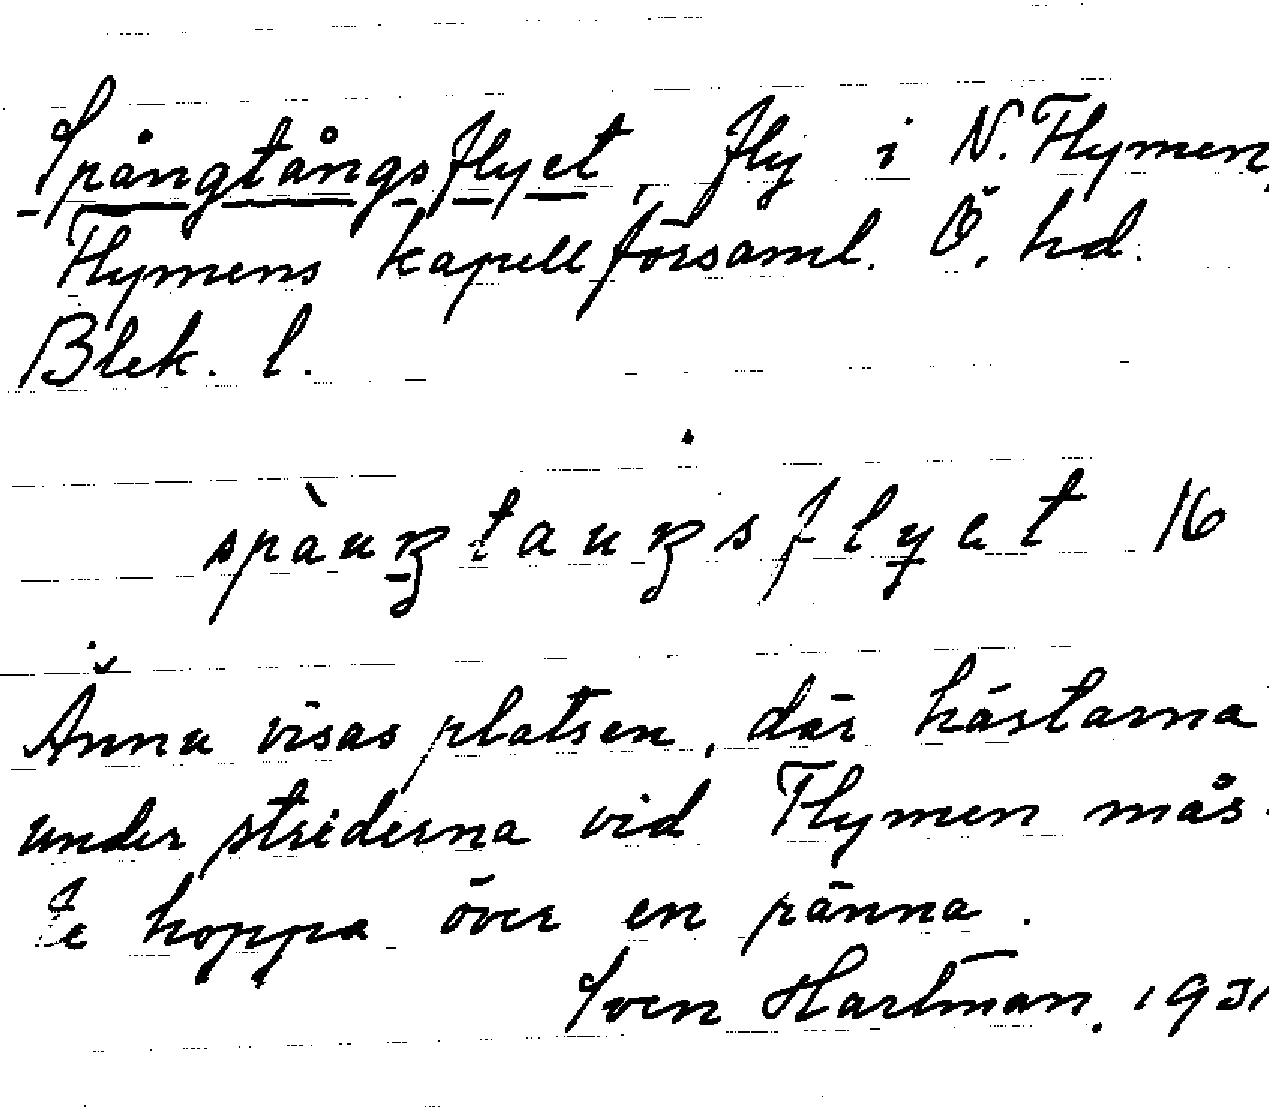 Spångtångsflyet, fly i N. Flymen,
Flymens kapellförsaml. Ö. hd.
Blek. l.
spàuꞟtauꞟsflyet 16
Ännu visas platsen, där hästarna
under striderna vid Flymen mås-
te hoppa över en ränna.
Sven Hartman. 1931